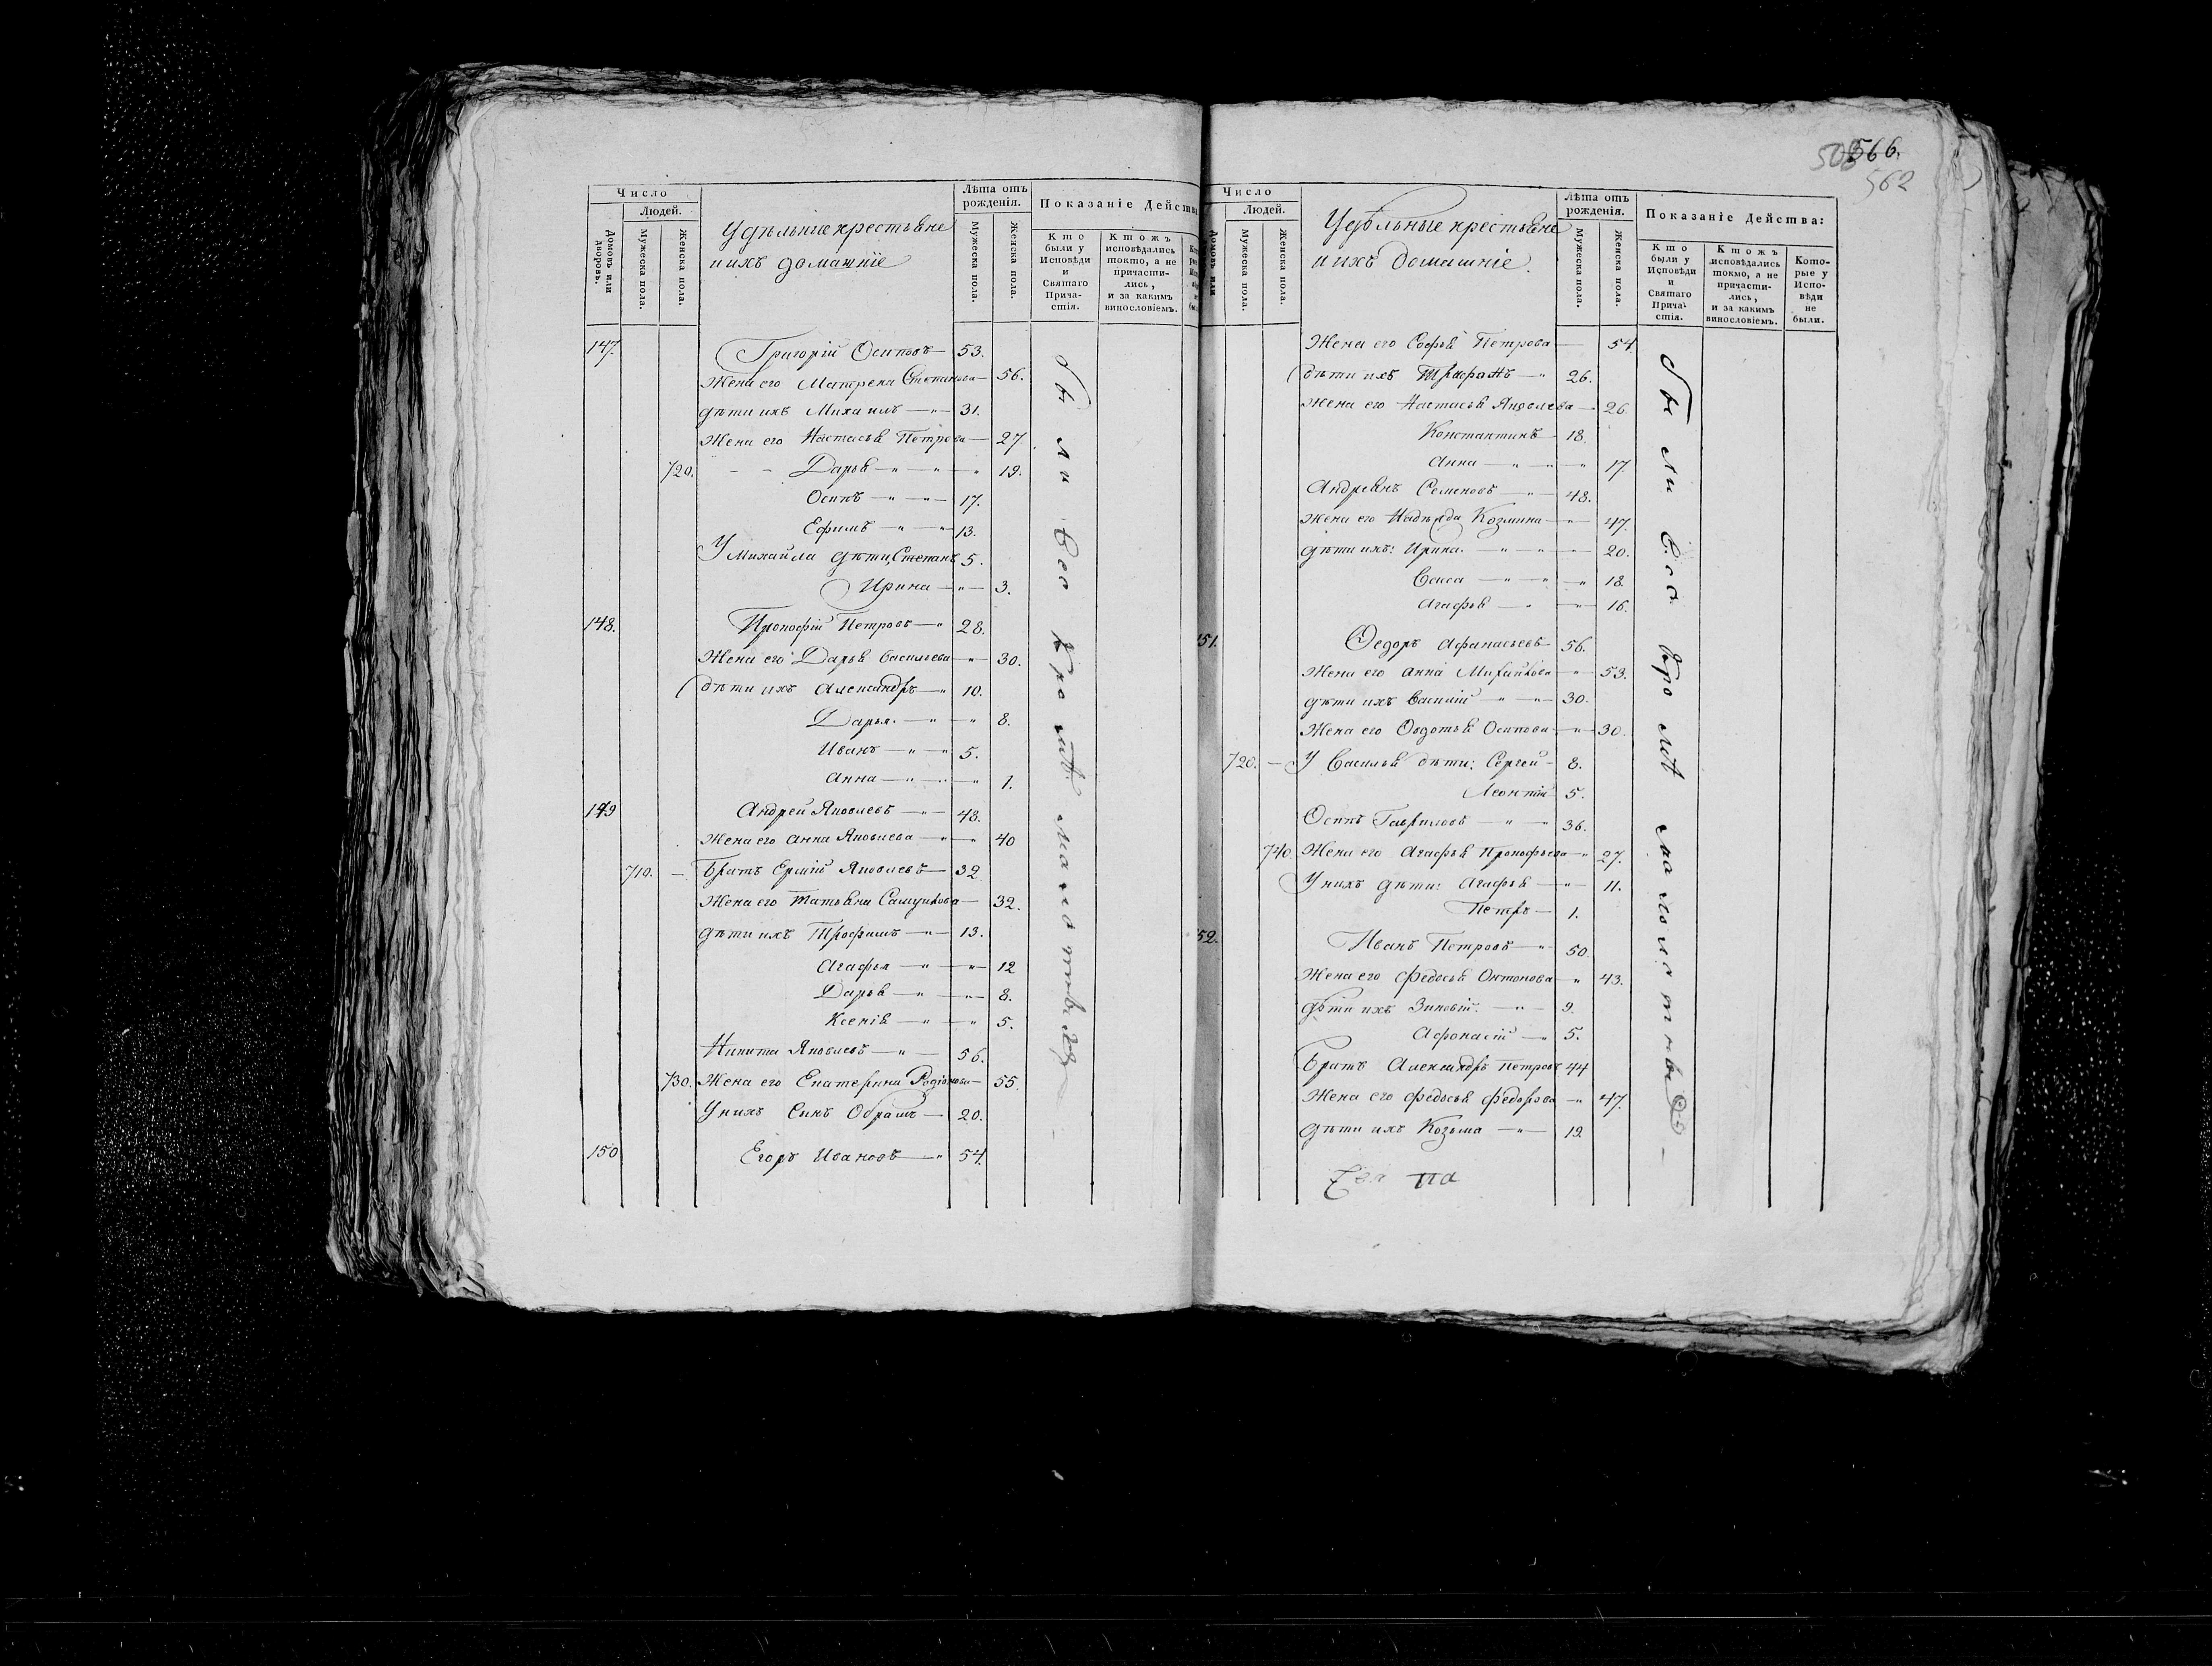 Число
Людей.
Домовъ или дворовъ.
Мужеска пола.
Женска пола.
Удѣльніе крестьяне
и ихъ домашніе
Лѣта отъ рожденія.
Мужеска пола.
Женска пола.
Показаніе Действ
Кто были у Исповѣди и Святаго Прича-стія.
Ктожъ исповѣдались токмо, а не причасти-лись, и за какимъ винословіемъ.
147. Григорій Осиповъ — 53.
Жена его Матрена Степанова — 56.
дѣти ихъ Михаилъ — 31.
Жена его Настасья Петрова — 27.
720. Дарья — 19.
Осипъ — 17.
Ефимъ — 13.
У Михайла дѣти, Степанъ 5.
Ирина — 3.
148. Прокофій Петровъ — 28.
Жена его Дарья Васильева — 30.
дѣти ихъ Александръ — 10.
Дарья — 8.
Иванъ — 5.
Анна — 1.
149 Андрей Яковлевъ — 43.
Жена его Анна Яковлева — 40
719. — Братъ Ермій Яковлевъ — 32
Жена его Татьяна Самуилова — 32.
дѣти ихъ Трофимъ — 13.
Агафья — 12
Дарья — 8.
Ксенія — 5.
Никита Яковлевъ — 56.
730. Жена его Екатерина Родіонова — 55.
У нихъ сынъ Обрамъ — 20.
150 Егоръ Ивановъ — 54.
были всѣ кромѣ малолѣтныхъ
566.
562
Число
Людей.
Домовъ или
Мужеска пола.
Женска пола.
Удѣльные крестьяне
и ихъ домашніе.
Лѣта отъ рожденія.
Мужеска пола.
Женска пола.
Показаніе Действа:
Кто были у Исповѣди и Святаго Прича-стія.
Ктожъ исповѣдались токмо, а не причасти-лись, и за какимъ винословіемъ.
Кото-рые у Испо-вѣди не были.
Жена его Софья Петрова — 54.
дѣти ихъ 26.
Жена его Настасья Яковлева — 26.
Константинъ — 18.
Анна — 17
Андреянъ Семеновъ — 48.
Жена его Надежда Козмина — 47.
дѣти ихъ: Ирина. — 20.
18.
Агафья — 16.
51. Ѳедоръ Афанасьевъ 56.
Жена его Анна Михайлова — 53.
дѣти ихъ Василій — 30.
Жена его Овдотья Осипова — 30.
720. — У Василья дѣти: Сергей — 8.
Леонтій 5.
Осипъ Гавриловъ — 36.
740. Жена его Агафья Прокофьева — 27.
У нихъ дѣти: Агафья — 11.
Петръ — 1.
52. Иванъ Петровъ — 50.
Жена его Федосья Онтонова — 43.
дѣти ихъ Зиновій. — 9.
Афонасій — 5.
Братъ Александръ Петровъ 44
Жена его Федосья Федорова — 47.
дѣти ихъ Козьма — 19.
были всѣ кромѣ малолѣтныхъ